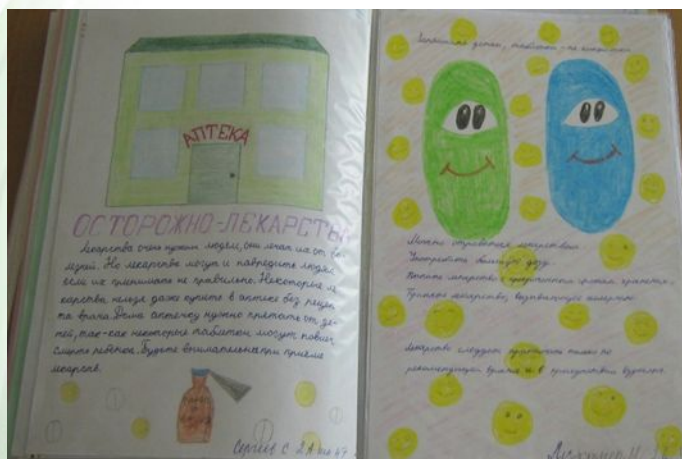 АПТЕКА
ОСТОРОЖНО-ЛЕКАРСТВ
Лекарства очень нужны людям, они лечат их от бо
лезней. Но лекарства могут и навредить людям
если их принимать не правильно. Некоторые ле
карства нельзя даже купить в аптеке без рецеп
та врача. Дома аптечку нужно прятать от де-
тей, так-как некоторые таблетки могут повлечь
смерть ребенка. Будьте внимательны при приёме
лекарств.
Сергеев С. 2А
Запомните дети, таблетки - не конфетки
Можно отравиться лекарством:
Употребить большую дозу.
Выпить лекарство с просроченным сроком хранения.
Принять лекарство, вызывающее аллергию.
Лекарство следует принимать только по
рекомендации врача и в присутствии взрослых.